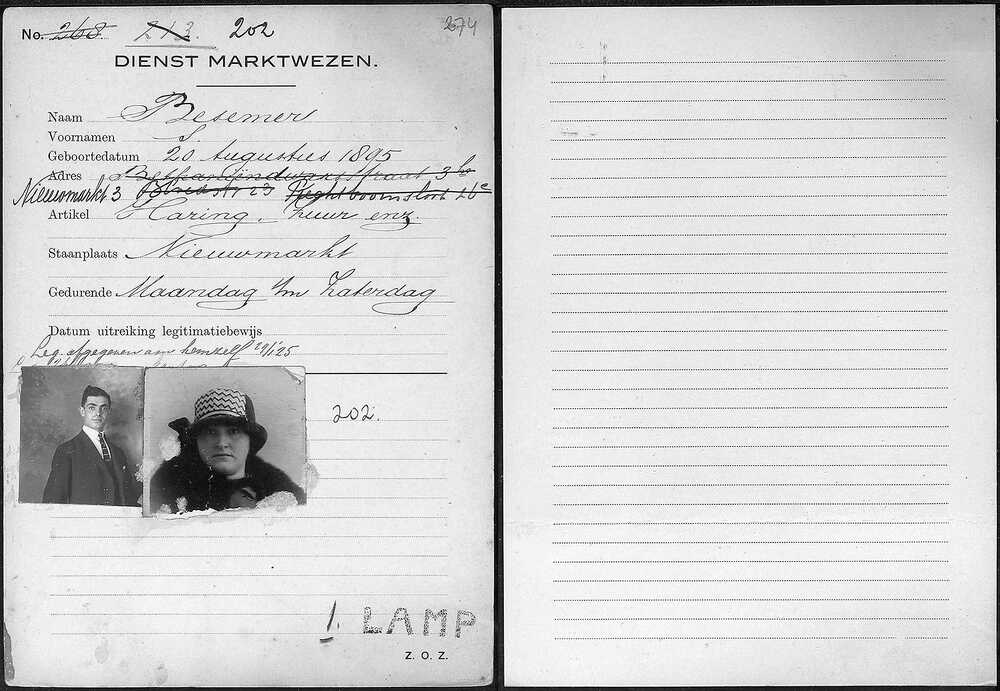 No. 268. 213. 202 274
DIENST MARKTWEZEN.
Naam Besemer
Voornamen S.
Geboortedatum 20 Augustus 1895
Adres straat 3 ho
Nieuwmarkt 3 23 Rechtboomsloot 26c
Artikel Haring, Zuur enz.
Staanplaats Nieuwmarkt
Gedurende Maandag t/m Zaterdag
Datum uitreiking legitimatiebewijs
Leg. afgegeven aan hemzelf 29/1 '25
202.
1. LAMP
Z. O. Z.